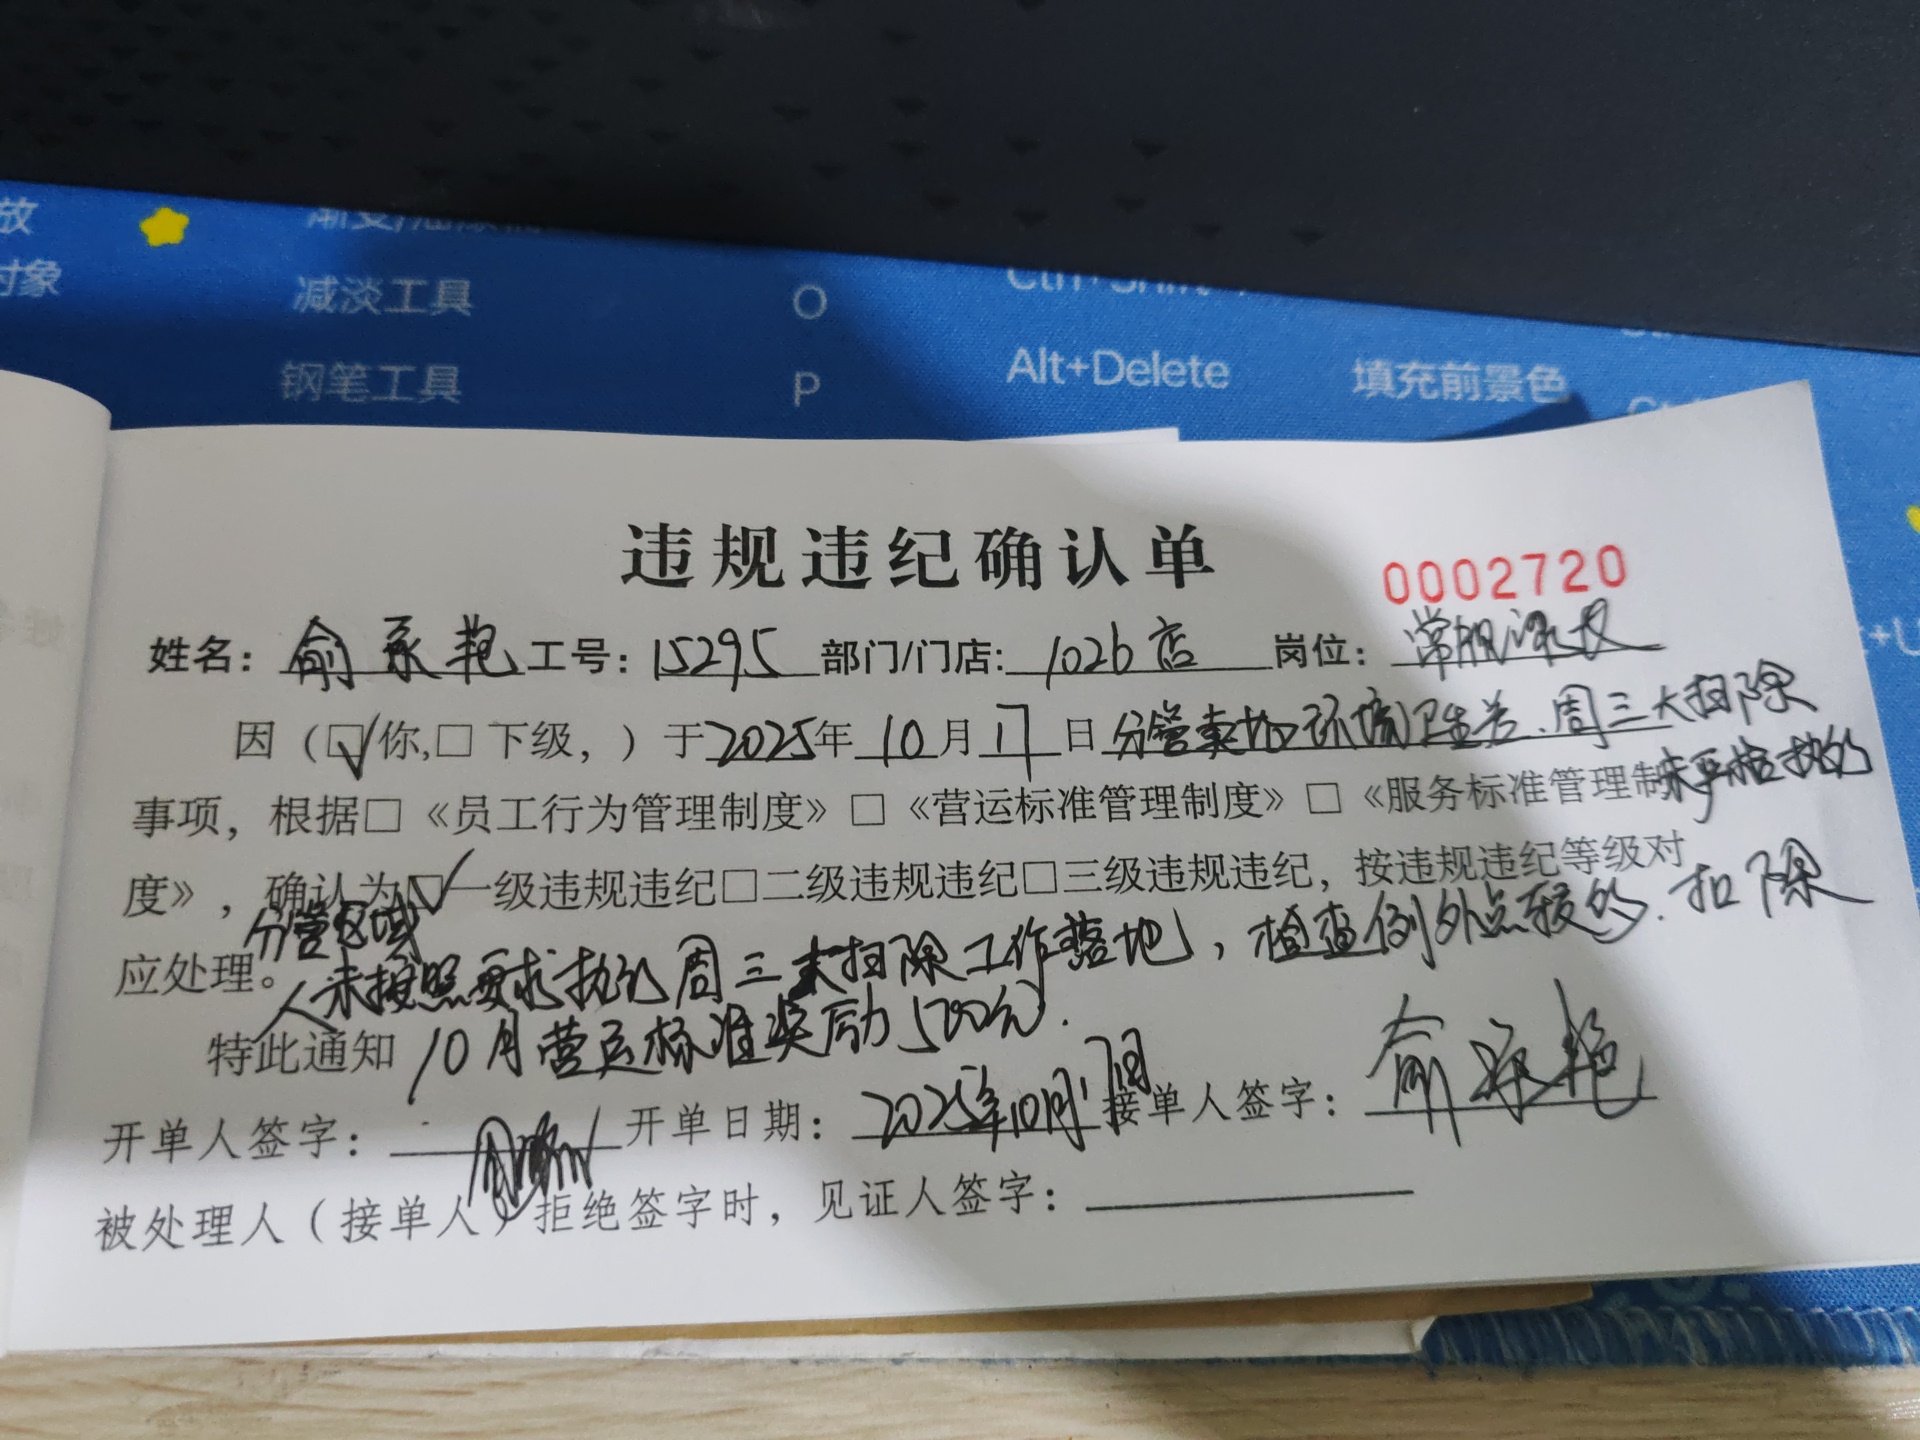 放
对象
减淡工具 O
钢笔工具 P Alt+Delete 填充前景色
违规违纪确认单
0002720
姓名: 俞承艳 工号: 15295 部门/门店: 1026店 岗位: 常规课长
因（☑你,□下级，）于2025年10月17日分管卖场环境卫生差.周三大扫除
未严格执行
事项，根据□《员工行为管理制度》□《营运标准管理制度》□《服务标准管理制
度》，确认为☑一级违规违纪□二级违规违纪□三级违规违纪，按违规违纪等级对
应处理。分管区域
人未按照要求执行周三大扫除工作落地，检查例外点较多.扣除
特此通知 10月营运标准奖励500元.
开单人签字: 开单日期: 2025年10月17日 接单人签字: 俞承艳
被处理人（接单人）拒绝签字时，见证人签字: